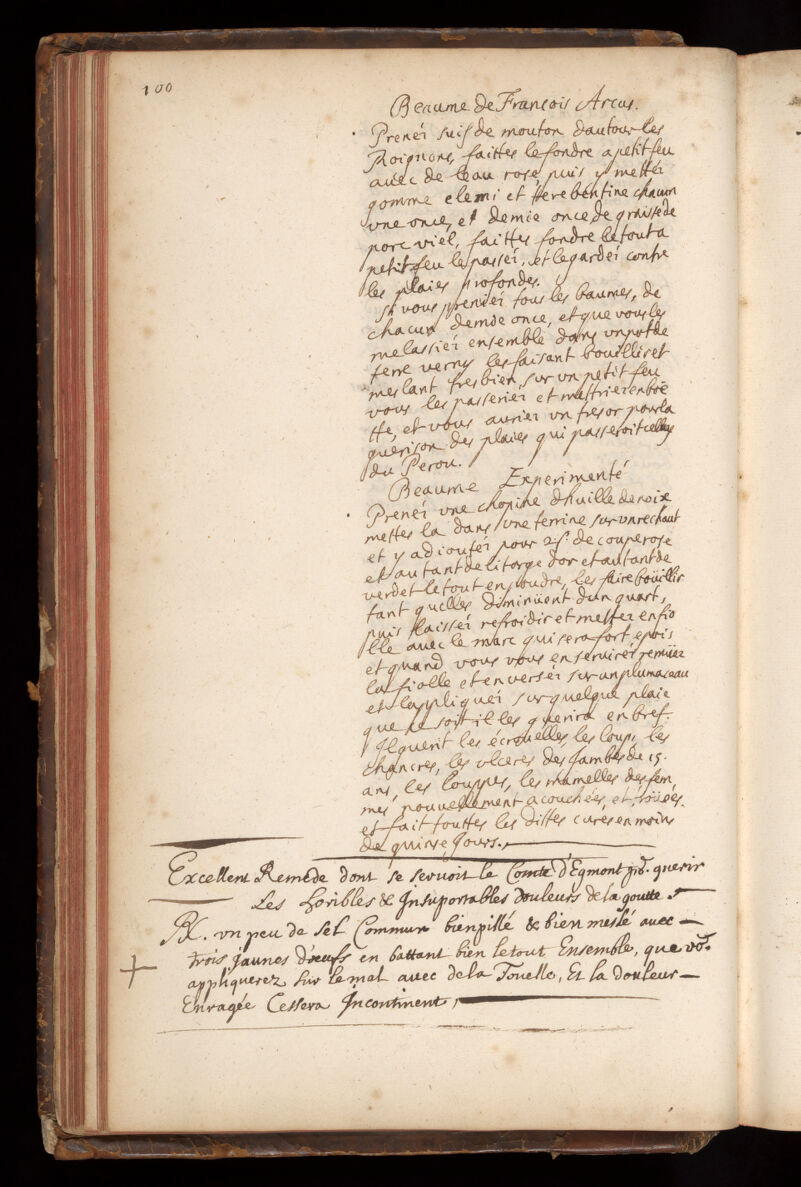 100
Beaume de François Arcus.
Prenéi suif de mouton d'autour les
Roignons, faittes le fondre a petit feu
avec de leau rose, puis y mettéi
gomme elemi et therebentine chacun
vne once, et demie once de graisse de
porc viel, faittes fondre le tout a
petit feu le passéi, et le gardéi contre
les plaies profondes.
Si vous prenéi tous les baumes, de
chacun demie once, et que vous les
melassiéi ensemble dans vn pot de
terre verny les faisant bouillir et
meslant tres bien, sur vn petit feu
vous les passeriéi et mettriéi en boë
tte, et vous auriéi vn tresor pour la
guerison des plaies qui passeroit celluy
du Perou.
Beaume Experimenté
Prenéi vne chopine d'huille de noix
mettes la dans vne terrine sur vn rechaut
et y adioutéi pour 2 s. de couperose
et autant de litarge d'or et autant de
verdet le tout en poudre, les faire boüillir
tant quelles diminüent d'un quart,
puis laisséi refroidir et mettez en fio
lle avec le marc qui sera fort epois
et quand vous vous en serviréi remüez
la fiolle et en verséi sur un plumaceau
et l'appliquéi sur quelque plaie
que ce soit il les guerira en bref.
Il guerit les écroüelles, les loups, les
chancres, les vlceres des Jambes de 15.
ans, les louppes, les mamelles des fem
mes nouvellement acouchées, et
et fait touttes les dittes cures en moins
de quinze Jours.
Excellent Remede dont se seruoit le Comte d'Egmont pr. querir
Les horibles & Jnsuportables Douleurs de la goutte.
RX. vn peu de sel Commun bien pillé & bien meslé auec
trois jaunes d'œufs en battant bien le tout Ensemble, que vo.
appliquerez sur le mal auec de la Touelle, Et la douleur
Enragée Cessera Jncontinent,